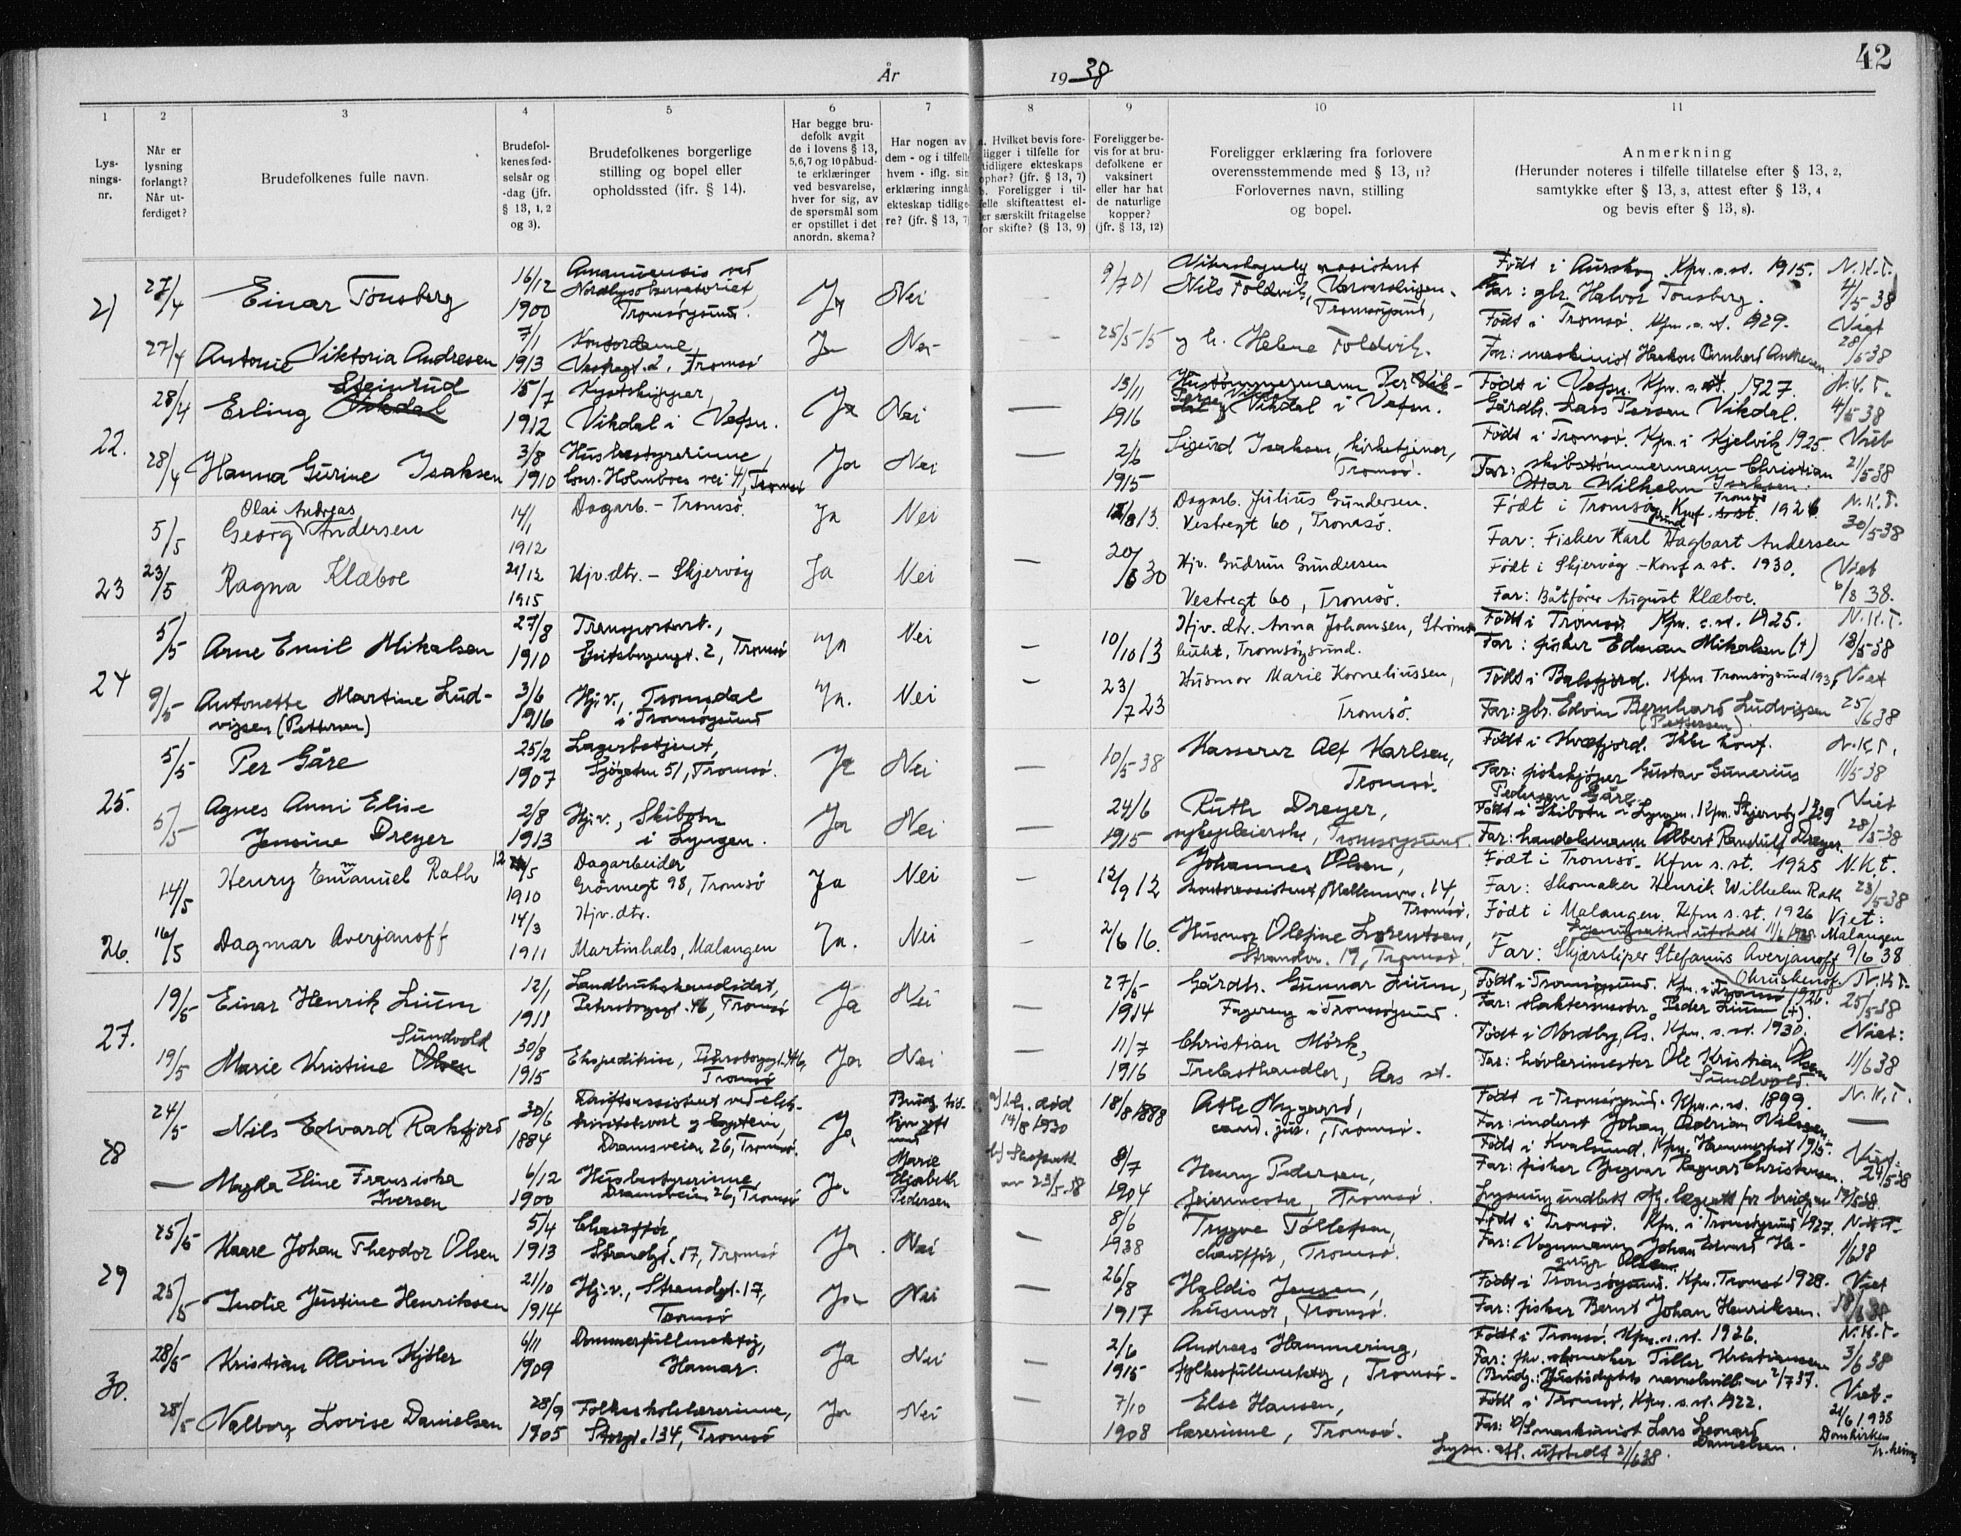 42
År
19 38
1
2
3
4
5
6
7
8
9
10
11
Lys-
nings-
nr.
Når er
lysning
forlangt?
Når ut-
ferdiget?
Brudefolkenes fulle navn.
Brudefol-
kenes fød-
selsår og
-dag (jfr.
§ 13, 1, 2
og 3).
Brudefolkenes borgerlige
stilling og bopel eller
opholdssted (jfr. § 14).
Har begge bru-
defolk avgit
de i lovens § 13,
5,6,7 og 10 påbud-
te erklæringer
ved besvarelse,
hver for sig, av
de spørsmål som
er opstillet i det
anordn. skema?
Har nogen av
dem - og i tilfelle
hvem - iflg. sin
erklæring inngå
ekteskap tidlige
re? (jfr. § 13, 7)
a. Hvilket bevis fore-
ligger i tilfelle for
tidligere ekteskaps
ophør? (jfr. § 13, 7)
b. Foreligger i til-
felle skifteattest el-
ler særskilt fritagelse
for skifte? (§ 13, 9)
Foreligger be-
vis for at bru-
defolkene er
vaksinert
eller har hat
de naturlige
kopper?
(jfr. § 13, 12)
Foreligger erklæring fra forlovere
overensstemmende med § 13, 11?
Forlovernes navn, stilling
og bopel.
Anmerkning
(Herunder noteres i tilfelle tillatelse efter § 13, 2,
samtykke efter § 13, 3, attest efter § 13, 4
og bevis efter § 13, 8).
21
27/4
Einar Tønsberg
16/12
1900
Amanuensis ved
Nordlysobservatoriet,
Tromsøysund.
Ja
Nei
9/7 01
Nils Foldvik,
Tromsøysund,
Født i Aurskog. Kfm. s. st. 1915.
Far: gbr. Halvor Tønsberg.
N.K.T.
4/5-38
27/4
Antonie Viktoria Andresen
7/1
1913
Kontordame,
Vestregt. 2, Tromsø
Ja
Nei
25/5-15
og h. Helene Foldvik.
Født i Tromsø. Kfm. s. st. 1929.
Far: maskinist Haakon Bernhard Andresen
Viet
28/5-38
22.
28/4
Steinrud
Erling Vikdal
15/7
1912
Kystskipper,
Vikdal i Vefsn.
Ja
Nei
—
13/11
1916
Vikdal i Vefsn.
Født i Vefsn. Kfm. s. st. 1927.
Gårdb. Lars Persen Vikdal.
N.K.T.
4/5-38
28/4
Hanna Gurine Isaksen
3/8
1910
Husbestyrerinne,
Cons. Holmboes vei 41, Tromsø
Ja
Nei
—
2/6
1915
Sigurd Isaksen, kirketjener,
Tromsø.
Født i Tromsø. Kfm. i Kjelvik 1925.
Far: skibstømmermann Christian
Ottar Wilhelm Isaksen.
Viet
21/5-38
23
5/5
Olai Andreas
Georg Andersen
14/1
1912
Dagarb. - Tromsø.
Ja
Nei
13.
Dagarb. Julius Gundersen.
Vestregt 60, Tromsø.
Født i Tromsøsund Konf. s. st. Tromsø 1926
Far: Fisker Karl Dagbart Andersen
N.K.T.
30/5-38
23/5
Ragna Klæboe
21/12
1915
Hjv. dtr. - Skjervøy
Ja
Nei
—
20/6 30
Hjv. Gudrun Gundersen
Vestregt 60, Tromsø.
Født i Skjervøy - Konf s. st. 1930.
Far: Båtfører August Klæboe.
Viet
6/8 38.
24
5/5
Arne Emil Mikalsen
27/8
1910
Transportarb.,
2, Tromsø
Ja
Nei
—
10/10 13
Hjv. dtr. Anna Johansen, Strøms-
bukt, Tromsøysund.
Født i Tromsø. Kfm. s. st. 1925.
Far: fisker Edman Mikalsen (†)
N.K.T.
18/5-38
9/5
Antonette Martine Lud-
vigsen (Pettersen)
3/6
1916
Hj.v., Tromsdal
i Tromsøysund
Ja.
Nei
—
23/7 23
Husmor Marie Korneliussen,
Tromsø.
Født i Balsfjord. Kfm. Tromsøysund 193
Far: gbr. Edvin Bernhard Ludvigsen
(Pettersen)
Viet
25/6 38
25.
5/5
Per Gåre
25/2
1907
Lagerbetjent,
Sjøgaten 51, Tromsø.
Ja
Nei
—
10/5-38
Kasserer Alf Karlsen,
Tromsø.
Født i Kvæfjord. Ikke konf.
Far: fiskekjøper Gustav Gunerius
Pedersen Gåre
N.K.T.
11/5-38
5/5
Agnes Anni Elise
Jensine Dreyer
2/8
1913
Hj.v., Skibotn
i Lyngen.
Ja
Nei
—
24/6
1915
Ruth Dreyer,
sykepleierske, Tromsøysund.
Født i Skibotn i Lyngen. Kfm. Skjervøy 1929
Far: handelsmann Albert Randulf Dreyer.
Viet
28/5-38
26.
14/5
Henry Emanuel Rath
12/5
1910
Dagarbeider
Grønnegt 98, Tromsø
Ja
Nei
12/9 12
Johannes Olsen,
kontorassistent, Mellemvn. 14,
Tromsø.
Født i Tromsø. Kfm s. st. 1925
Far: Skomaker Henrik Wilhelm Rath
N.K.T.
23/5-38
16/5
Dagmar Averjanoff
14/3
1911
Hjv. dtr.
Martinhals, Malangen
Ja.
Nei
—
2/6 16.
Husmor Olefine Lorentsen,
Strandvn. 19, Tromsø.
Født i Malangen. Kfm s. st. 1926
Lysningsattest utstedt 11/6 1938
Far: Skjærsliper Stefanus Averjanoff
Viet:
Malangen
9/6 38
27.
19/5
Einar Henrik Lium
12/1
1911
Landbrukskandidat,
Petersborggt. 46, Tromsø
Ja
Nei
—
27/5
1914
Gårdb. Gunnar Lium,
Fagereng i Tromsøysund.
Født i Tromsøysund. Kfm. i Tromsø 1926.
Far: slaktermester Peder Lium (†).
N.K.T.
25/5-38
19/5
Sundvold
Marie Kristine Olsen
30/8
1915
Ekspeditrise, Petersborggt. 46,
Tromsø
Ja
Nei
—
11/7
1916
Christian Mörk,
Trelasthandler, Aas st.
Født i Nordby, As. Kfm. s. st. 1930.
Far: høvlerimester Ole Kristian Olsen
Sundvold.
Viet:
11/6 38
28
24/5
Nils Edvard Rakfjord
30/6
1884
Driftsassistent ved elek-
trisitetsverk og kaptein,
Dramsveien 26, Tromsø.
Ja
Brudg. tid-
ligere gift
med
Marie
Elisabeth
Pedersen
a) død
14/8 1930
b) Skifteatt.
av 23/5-38
18/8 1888
Atle Nygaard,
cand. jur., Tromsø.
Født i Tromsøysund. Kfm. s. st. 1899.
Far: inderst Johan Adrian Nilssen
N.K.T.
—
—
Magda Eline Fransiska
Iversen
6/12
1900
Husbestyrerinne
Dramsveien 26, Tromsø
Ja
8/7
1904
Henry Pedersen,
feiermester, Tromsø.
Født i Kvalsund. Kfm. Hammerfest 1915.
Far: fisker Yngvar Ragnar Christensen.
Viet.
24/5-38
29
25/5
Kaare Johan Theodor Olsen
5/4
1913
Chauffør,
Strandgt. 17, Tromsø
Ja
Nei
—
8/6
1938
Trygve Tollefsen,
chauffør, Tromsø.
Født i Tromsø. Kfm. i Tromsøysund 1927.
Far: Vognmann Johan Edvard
Olsen.
N.K.T.
1/6 38
25/5
Indie Justine Henriksen
21/10
1914
Hj.v., Strandgt. 17,
Tromsø
Ja
Nei
—
26/8
1917
Haldis Jensen,
husmor, Tromsø.
Født i Tromsøysund. Kfm. Tromsø 1928.
Far: fisker Bernt Johan Henriksen.
Viet
18/6 38
30.
28/5
Kristian Alvin Kjøler
6/11
1909
Dommerfullmektig,
Hamar.
Ja
Nei
—
2/6
1915
Andreas Hammering,
fylkesfullmektig, Tromsø.
Født i Tromsø. Kfm. s. st. 1926.
Far: fhv. skomaker Tiller Kristiansen
(Brudg.: Justisdeptets navnebevill. av 2/7 37.
N.K.T.
3/6 38
28/5
Valborg Lovise Danielsen
28/9
1905
Folkeskolelærerinne,
Storgt. 134, Tromsø
Ja
Nei
—
7/10
1908
Else Hansen,
lærerinne, Tromsø.
Født i Tromsø. Kfm. s. st. 1922.
Far: maskinist Lars Leonard
Danielsen.
Viet
21/6 1938
Domkirken
Tr.heim
Lysn. att. utstedt 2/6 38.